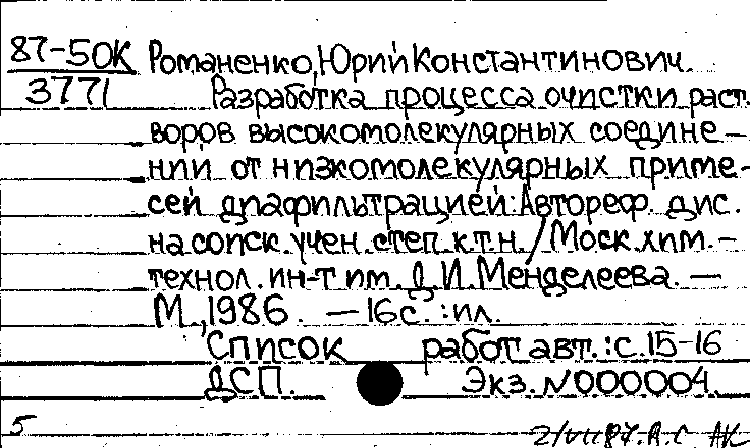 87-50К Романенко, Юрий Константинович.
3771 Разработка процесса очистки раст.
воров высокомолекулярных соедине-
нии от низкомолекулярных приме-
сей диафильтрацией: Автореф. дис.
на соиск. учен. степ. к.т.н. / Моск. хим.-
технол. ин-т им. Д. И. Менделеева. —
М., 1986. — 16с. : ил.
Список работ авт.: с. 15-16
ДСП. Экз. N000004
5